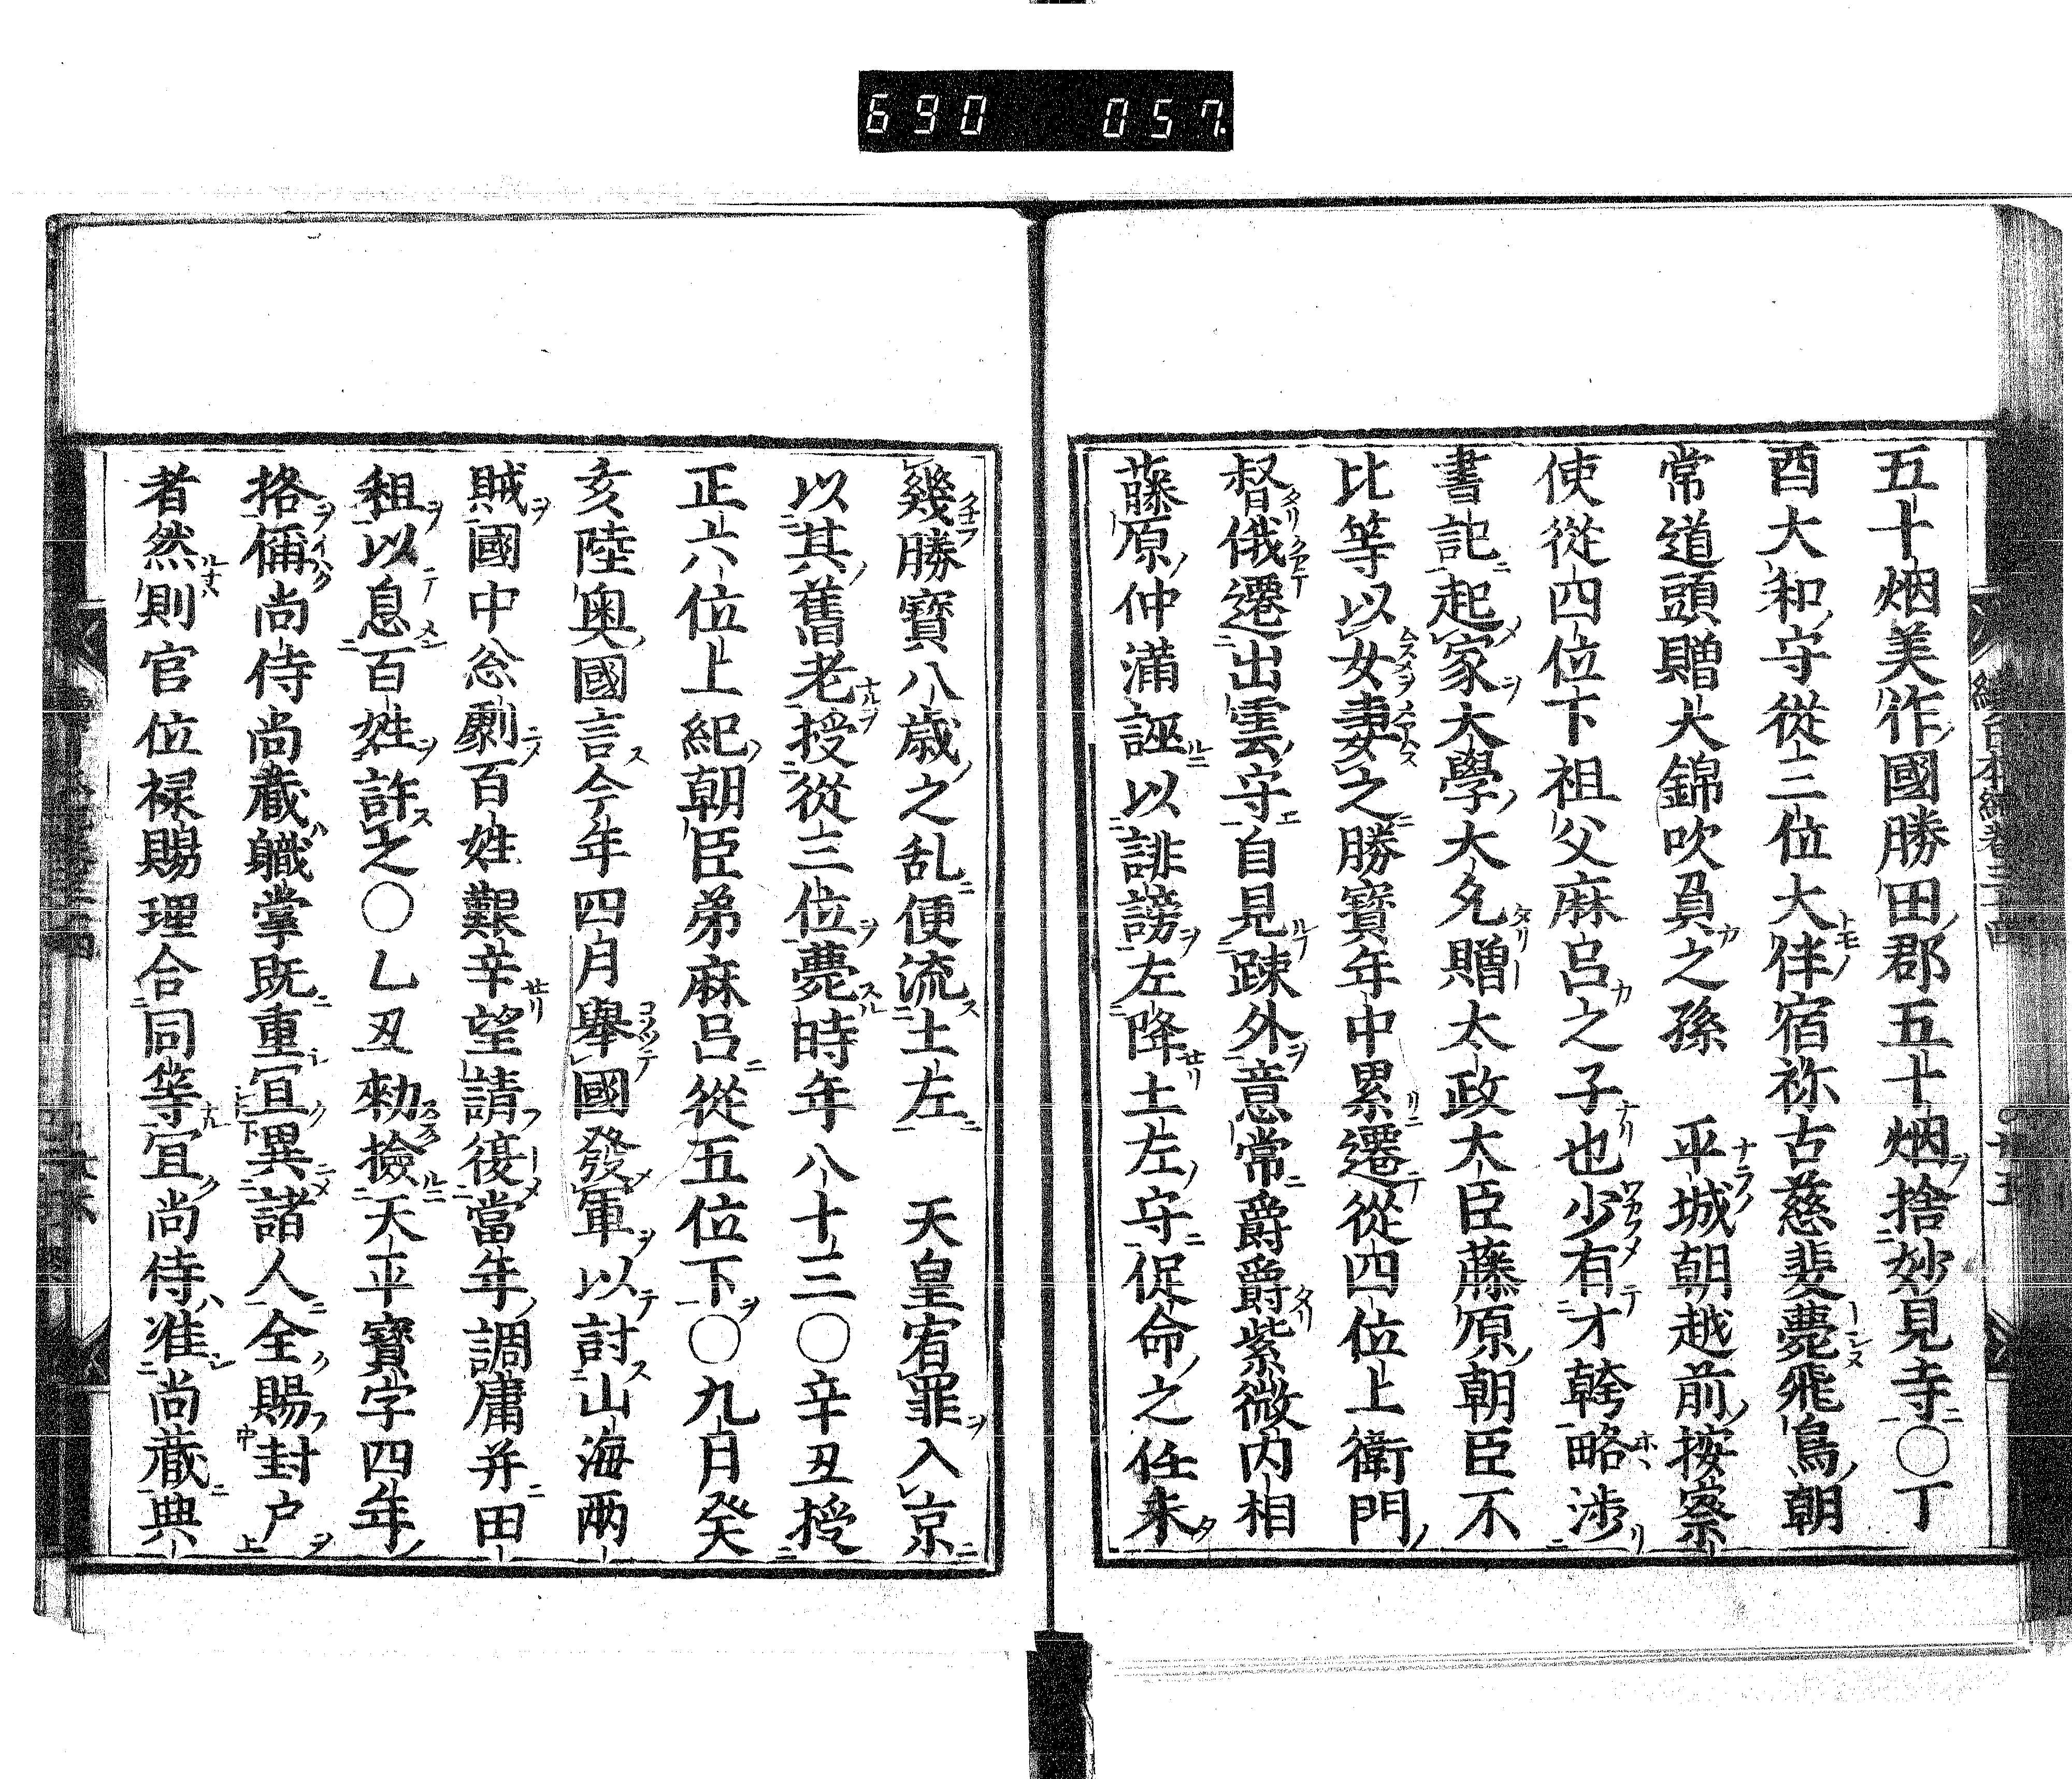 690 057
五十烟美作國勝田郡五十烟捨妙見寺〇丁
酉大和守從三位大伴宿祢古慈斐薨飛鳥朝
常道頭贈大錦吹負之孫 平城朝越前按察
使從四位下祖父麻呂之子也少有才幹略渉
書記起家大學大允贈太政大臣藤原朝臣不
比等以女妻之勝寳年中累遷從四位上衛門
督俄遷出雲守自見疎外意常爵爵紫微内相
藤原仲滿誣以誹謗左降土左守促命之任未
幾勝寳八歳之乱便流土左 天皇宥罪入京
以其舊老授從三位薨時年八十三〇辛丑授
正六位上紀朝臣弟麻呂從五位下〇九月癸
亥陸奥國言今年四月舉國發軍以討山海兩
賊國中忩劇百姓艱辛望請復當年調庸并田
租以息百姓許之〇乙丑勑撿天平寳字四年
挌偁尚侍尚蔵軄掌既重冝異諸人全賜封户
者然則官位禄賜理合同等冝尚侍准尚蔵典